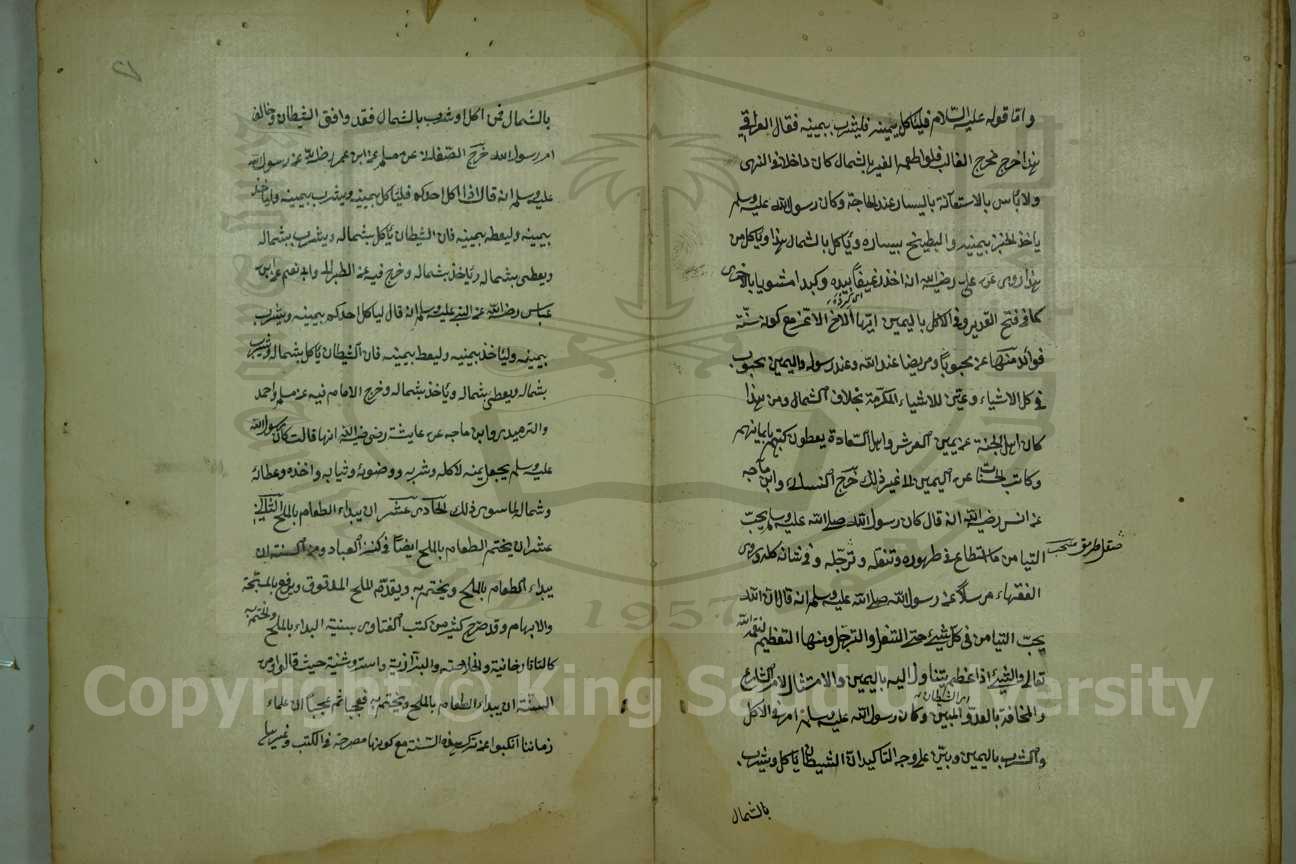 واما قوله عليه السلام فليأكل بيمينه فليشرب بيمينه فقال العراقي
هذا خرج مخرج الغالب فلو اطعمه الغير بالشمال كان داخلا في النهى
ولا بأس بالاستعانة باليسار عند الحاجة وكان رسول الله عليه وسلم
ياخذ الخبز بيمينه والبطيخ بيساره ويأكل بالشمال هذا ويأكل من
هذا روى عن على رضى الله انه اخذ رغيفا بيده وكبدا مشويا بالاخرى
كما في فتح القدير وفي الاكل باليمين ايها الاخ الاعز مع كونه سنة
فوائد منها عند الله وعند رسوله واليمين محبوب
في كل الاشياء للاشياء المكرمة بخلاف الشمال ومن هذا
كان اهل الجنة عن يمين العرش واهل السعادة يعطون كتبهم بايمانهم
وكاتب الحسنات عن اليمين الا غير ذلك خرج النسائي وابن ماجه
عن انس رضى الله انه قال كان رسول الله صلى الله عليه وسلم يحب
التيامن ما استطاع في طهوره وتنعله وترجله وفي شانه كله وروى
الفقهاء مرسلا عن رسول الله صلى الله عليه وسلم انه قال ان الله
يحب التيامن في كل شيء حتى التنعل والترجل ومنها التعظيم
تعالى والشيء اذا عظم يتناول اليه باليمين والامتثال لامر الشارع
والمخافة بالعدو المبين وكان رسول الله عليه وسلم امر في الاكل
والشرب باليمين وبين على وجه التاكيد ان الشيطان يأكل ويشرب
بالشمال
بالشمال فمن اكل او شرب بالشمال فقد وافق الشيطان وخالف
امر رسول الله خرج عن مسلم عن ابن عمر رضى الله عن رسول الله
عليه وسلم انه قال اذا اكل احدكم فليأكل بيمينه ويشرب بيمينه وليأخذ
بيمينه وليعط بيمينه فان الشيطان يأكل بشماله ويشرب بشماله
ويعطى بشماله ويأخذ بشماله وخرج فيه عن الطبراني وابى نعيم عن ابن
عباس رضى الله عن النبى عليه وسلم انه قال ليأكل احدكم بيمينه ويشرب
بيمينه وليأخذ بيمينه وليعط بيمينه فان الشيطان يأكل بشماله ويشرب
بشماله ويعطى بشماله ويأخذ بشماله وخرج الامام فيه عن مسلم واحمد
والترميدى وابن ماجه عن عايشة رضى الله انها قالت كان رسول الله
عليه وسلم يجعل يمنه لاكله وشربه ووضوئه وثيابه واخذه وعطائه
وشماله لما سوى ذلك الحادى عشر ان يبداء الطعام بالملح الثانى
عشر ان يختم الطعام بالملح ايضا في كنز العباد ومن السنة ان
يبداء الطعام بالملح ويختم به ويقدم الملح المدقوق ويرفع بالمسبحة
والابهام وقد صرح كثير من كتب الفتاوى بسنية البداء بالملح والختم به
كالتاتارخانية والخلاصة والبزازية حيث قالوا من
السنة ان يبداء الطعام بالملح ويختم به فيجيا ثم عجبا ان علماء
زماننا انكبوا عن ترك هذه السنة مع كونها مصرحة في الكتب وغير
1957
Copyright © King Saud University